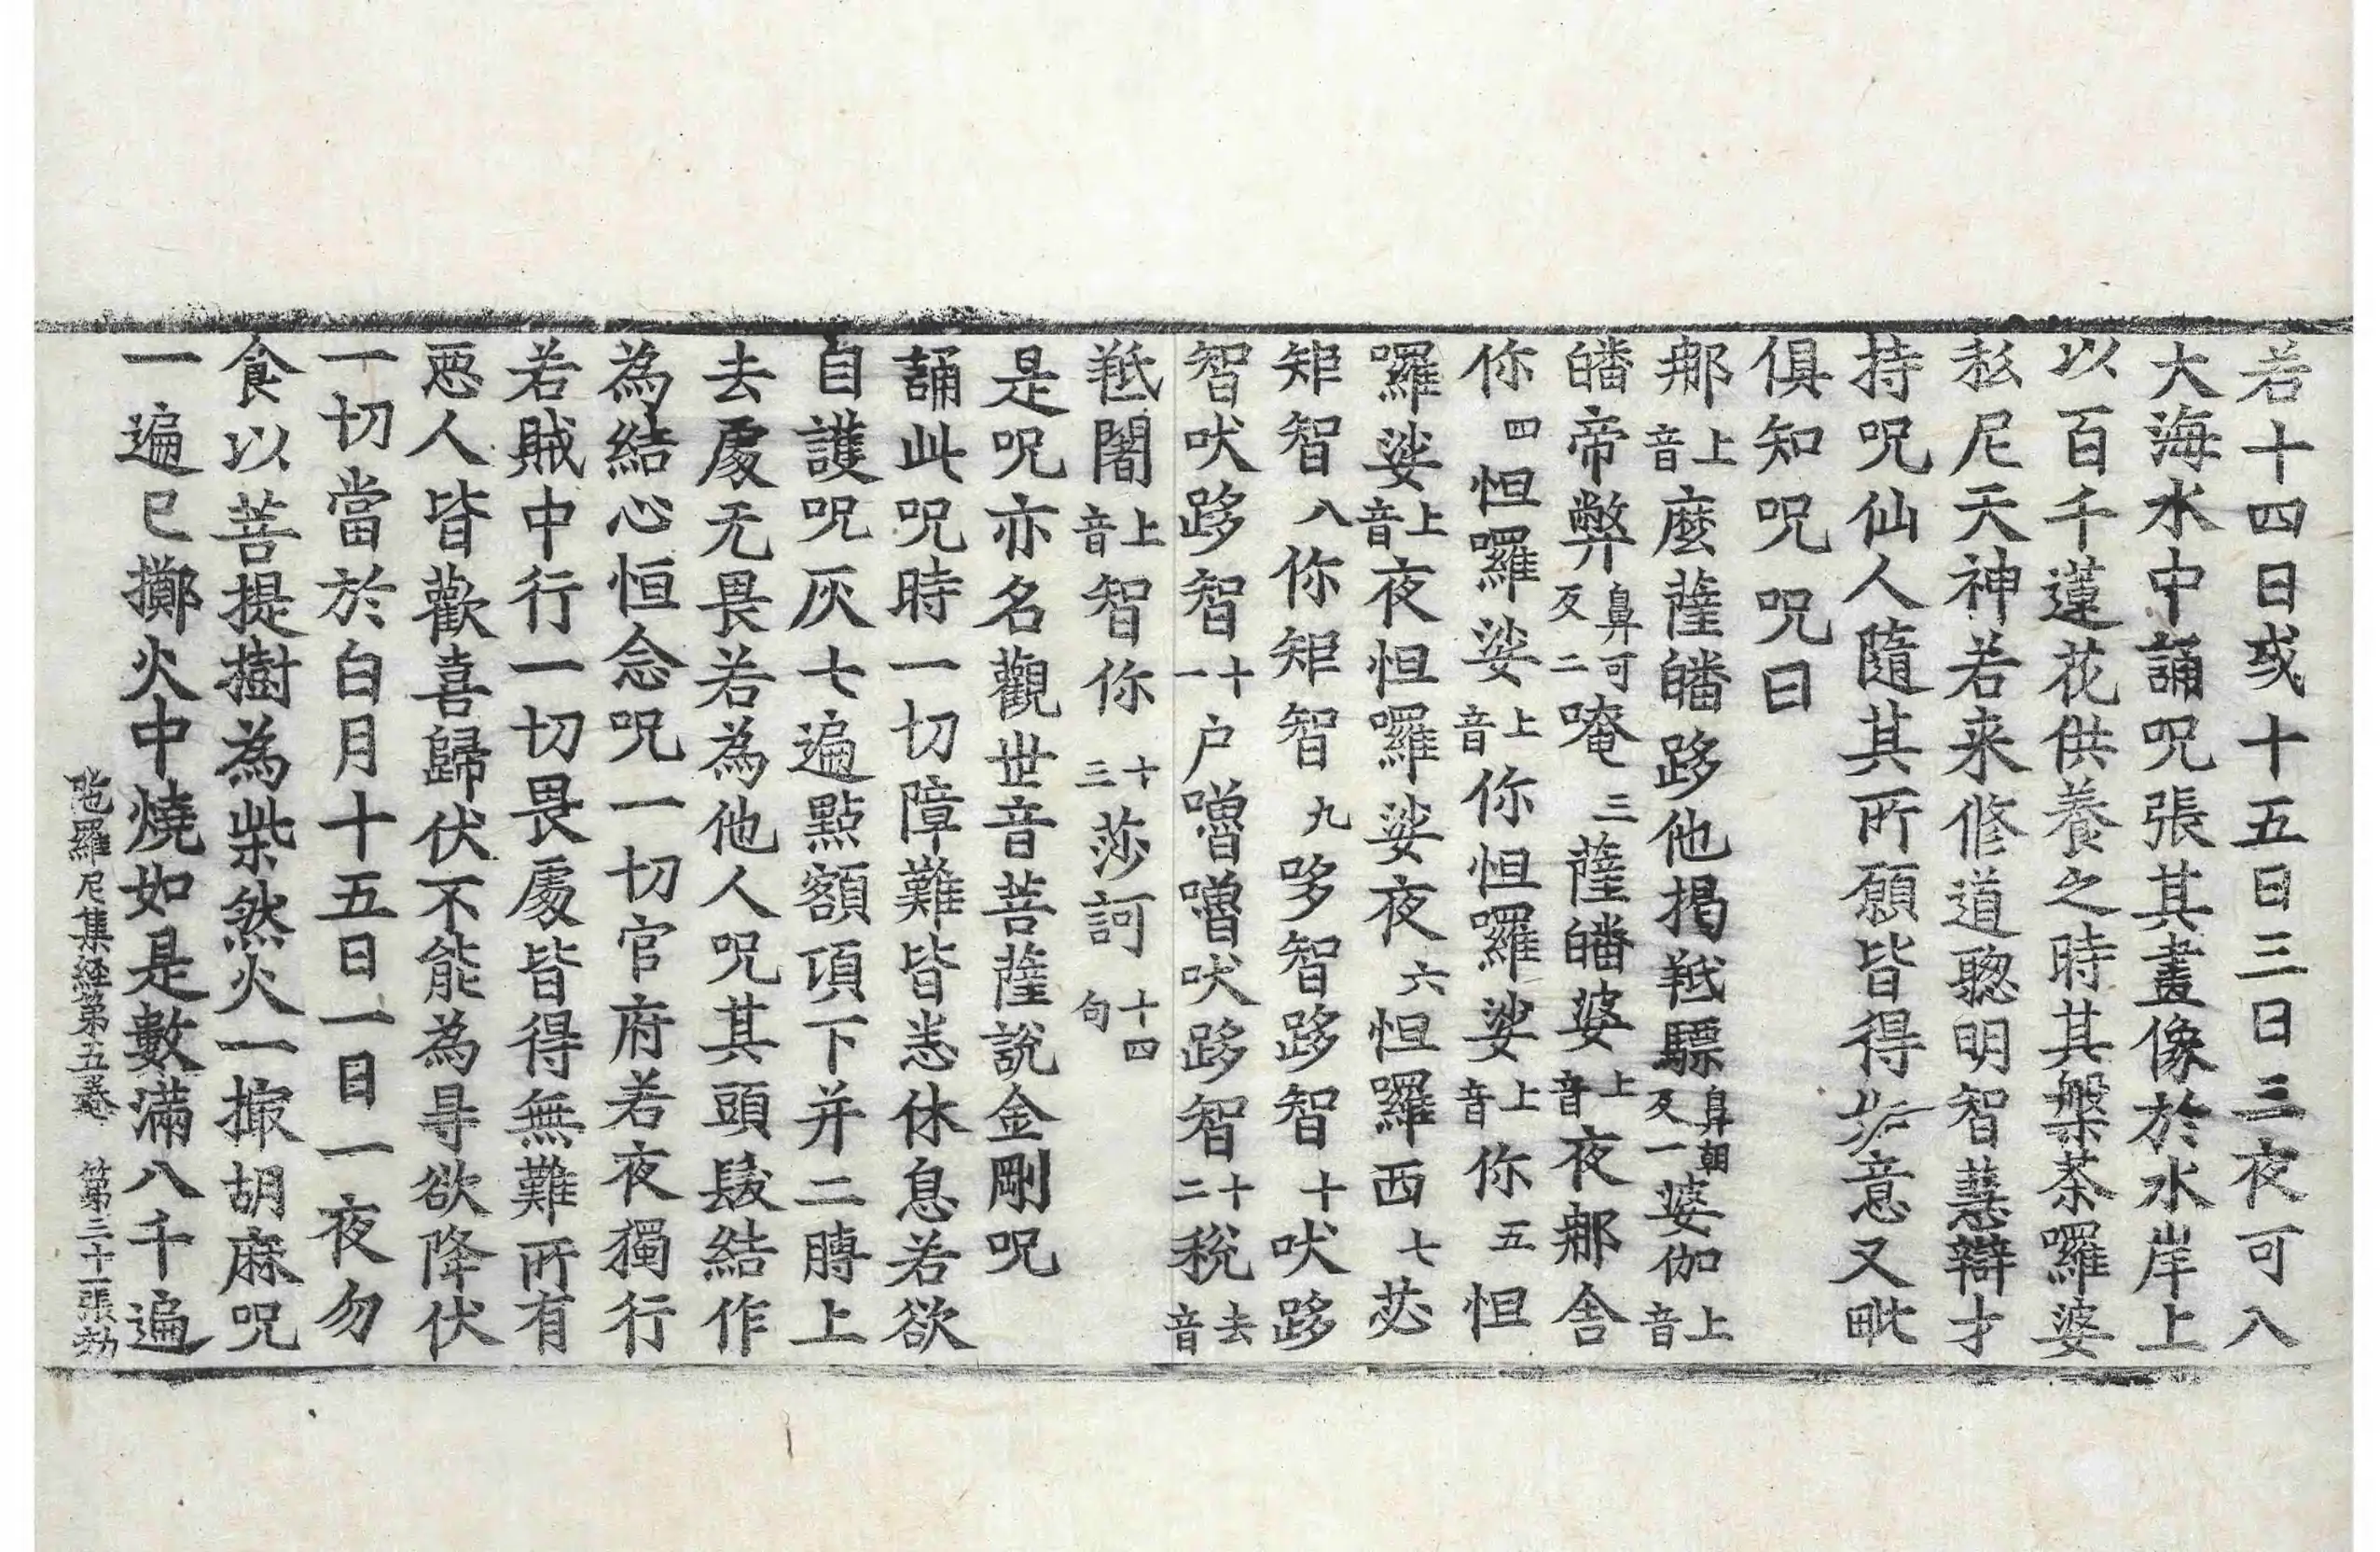 若十四日或十五日三日三夜可入
大海水中誦呪張其畫像於水岸上
以百千蓮花供養之時其槃茶羅婆
私尼天神若来修道聰明智慧辯才
持呪仙人隨其所願皆得如意又毗
俱知呪呪曰
那上音麼薩皤跢他揭羝驃鼻朝反一婆伽上音
皤帝弊鼻可反二唵三薩皤婆上音夜那舍
你四怛囉娑上音你怛囉娑上音你五怛
囉娑上音夜怛囉娑夜六怛囉西七苾
矩智八你矩智九哆智跢智十吠跢
智吠跢智十一户嚕嚕吠跢智十二税去音
羝闍上音智你十三莎訶十四句
是呪亦名觀世音菩薩說金剛呪
誦此呪時一切障難皆悉休息若欲
自護呪灰七遍點額項下并二膊上
去處无畏若為他人呪其頭髮結作
為結心恒念呪一切官府若夜獨行
若賊中行一切畏處皆得無難所有
惡人皆歡喜歸伏不能為㝵欲降伏
一切當於白月十五日一日一夜勿
食以菩提樹為柴然火一撮胡麻呪
一遍已擲火中燒如是數滿八千遍
陁羅尼集経第五卷 第三十二張 劾